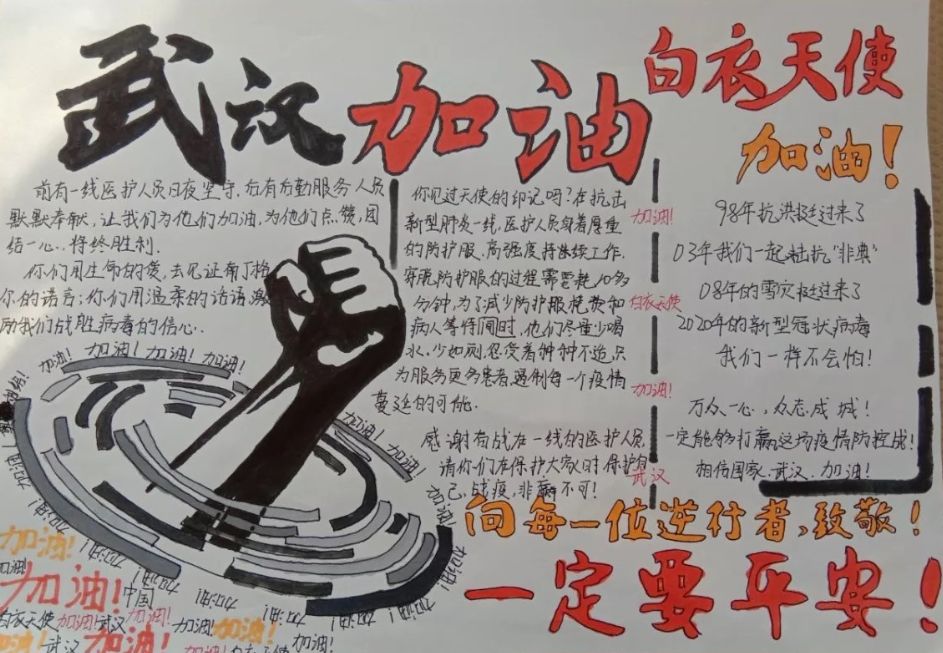 武汉加油
白衣天使
加油！
前有一线医护人员日夜坚守，后有后勤服务人员
默默奉献，让我们为他们加油，为他们点赞，团
结一心，将终胜利.
你们用生命的
你的诺言；你们用温柔的话语激
励我们战胜病毒的信心.
你见过天使的印记吗？在抗击
新型肺炎一线，医护人员身着厚重
的防护服，高强度持续工作.
穿脱防护服的过程需要耗10多
分钟，为了减少防护服耗费和
病人等待间时，他们尽量少喝
水，少如厕，忍受着种种不适，只
为服务更多患者，遏制每一个疫情
蔓延的可能.
感谢奋战在一线的医护人员
请你们在保护大家时保护自
己，战疫，非赢不可！
加油！
白衣天使
加油！
武汉
98年抗洪挺过来了
03年我们一起抗"非典"
08年的雪灾挺过来了
2020年的新型冠状病毒
我们一样不会怕！
万众一心，众志成城！
一定能够打赢这场疫情防控战！
相信国家，武汉，加油！
向每一位逆行者，致敬！
一定要平安！
加油！加油！加油！加油！
加油！
加油！
加油！
加油！
加油！
加油！
加油！中国加油！
白衣天使加油！武汉
加油！加油！
武汉加油！加油！白衣天使加油！